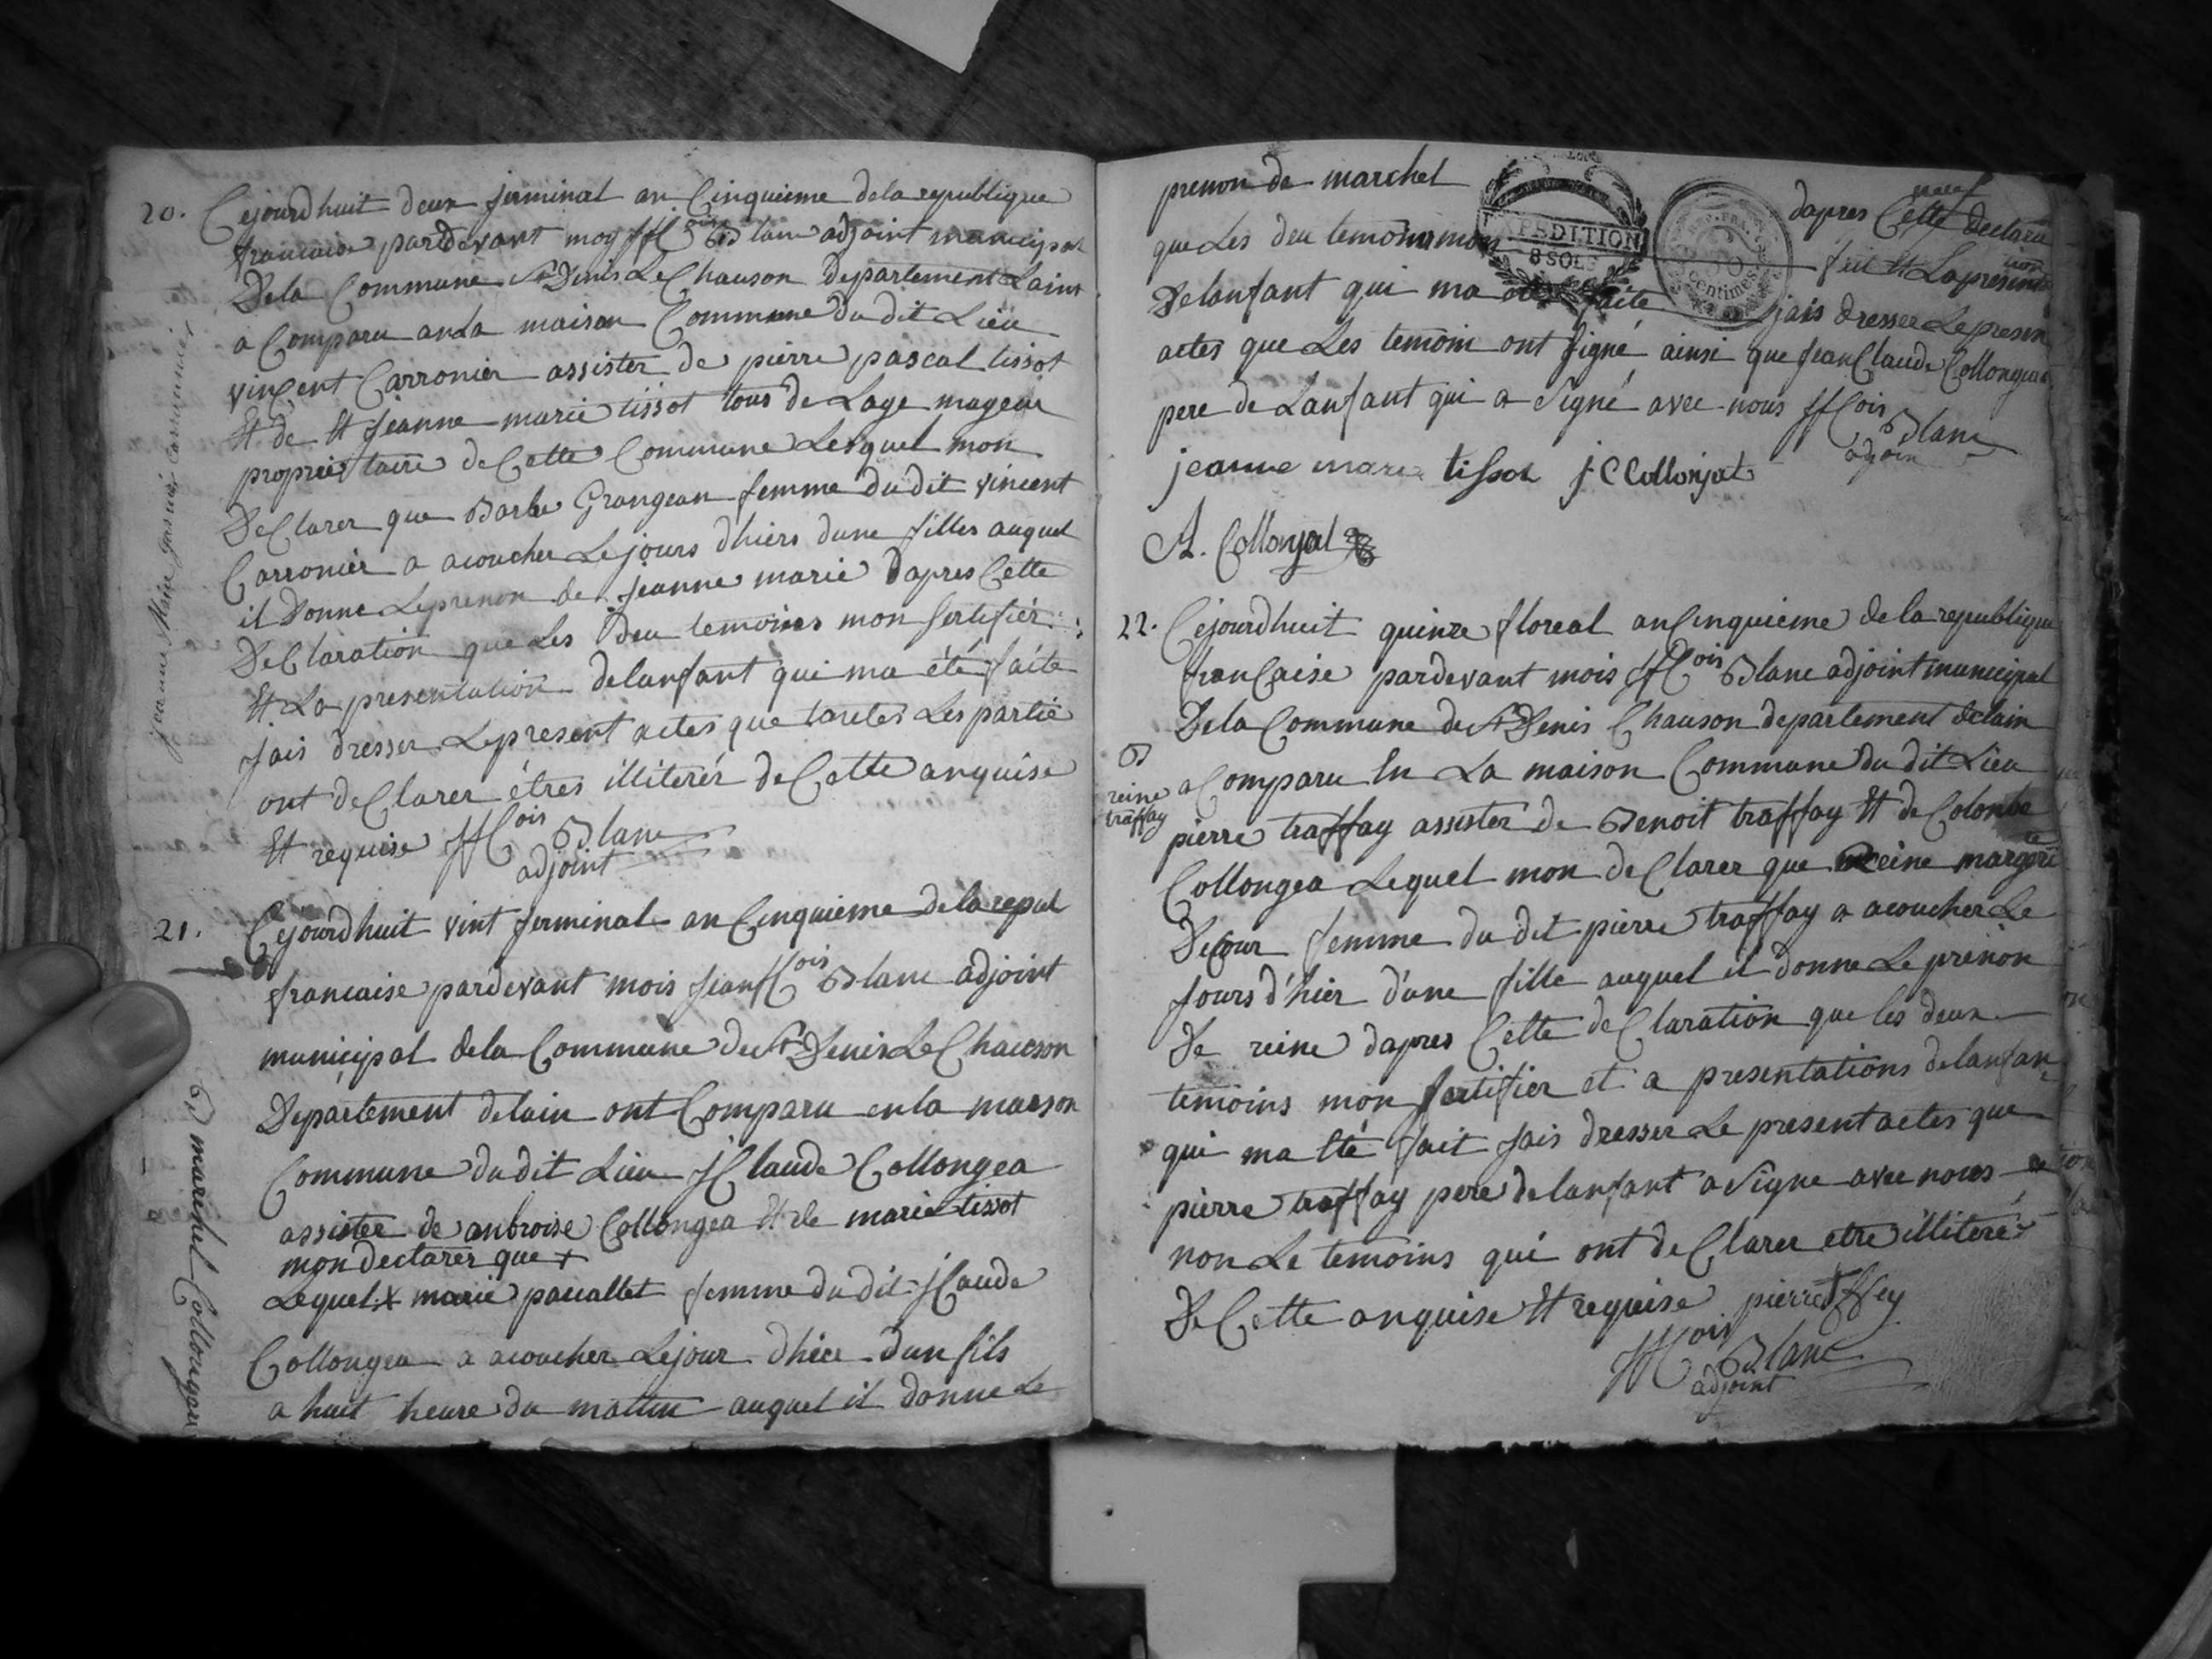 20. Cejourdhuit deux jerminal an Cinquieme dela republique
francaise pardevant moy ffCois Blanc adjoint municipal
Dela Commune St Denis Le Chauson departement Laint
a Comparu anLa maison Commune du dit Lieu
vincent Carronier assister de pierre pascal tissot
Et de Et jeanne marie tissot tous de Lage mageur
proprietaire de Cette Commune Lesquel mon
DeClarer que Barbe Grangean femme du dit vincent
Carronier a acoucher Le jours dhiers dune filles auquel
il Donne Leprenon de jeanne marie dapres Cette
DeClaration que Les deu temoines mon Sertifier
Et La presentation delanfant qui ma été faite
jais dresser Lepresent actes que toutes Les partie
ont deClarer étres illiterér de Cette anquise
Et requise ffCois Blanc
adjoint
jeanne Marie
21. Cejourdhuit vint jerminal an Cinquieme dela repul
francaise pardevant mois jean ffCois Blanc adjoint
municipal dela Commune de St Denis Le Chauson
Departement delain ont Comparu enla maison
Commune du dit Lieu JClaude Collongea
assister de anbroise Collongea Et de marie tissot
mon declarer que +
Lequel + marie pauallet femme du dit JClaude
Collongea a acoucher Lejour dhier dun fils
a huit heure du mattin auquel il donne Le
B marchel Collongea
prenon de marchel
EXPEDITION
8 SOLS
centimes
dapres Cette declara
que Les deu temoins mon
fiit Et Lapresenta
Delanfant qui ma ete faite jais dresser Lepresen
actes que Les temoin ont signé ainsi que jean Claude Collongea
pere de Lanfant qui a signé avec nous ffCois
Blanc
adjoin
jeanne marie tissot j C Collonjat
A. Collonjat
22. Cejourdhuit quinze floreal an Cinquieme de la republique
franCaise pardevant mois ffCois Blanc adjoint municipal
De la Commune de St Denis Chauson departement delain
B
reine
traffay
a Comparu En La maison Commune du dit Lieu
pierre traffay assister de Benoit traffay Et de Colonbe
Collongea Lequel mon deClarer que Reine margerite
Decour femme du dit pierre traffay a acoucher Le
Jours d'hier d'une fille auquel il donne Le prenon
De reine dapres Cette deClaration que les deux
temoins mon sertifier et a presentations delanfan
qui ma Eté fait jais dresser Le present actes que
pierre traffay pere delanfant a signe avec nous
non Le temoins qui ont deClarer etre illiteré
De Cette anquise Et requise pierre tffey
ffCois Blanc
adjoint